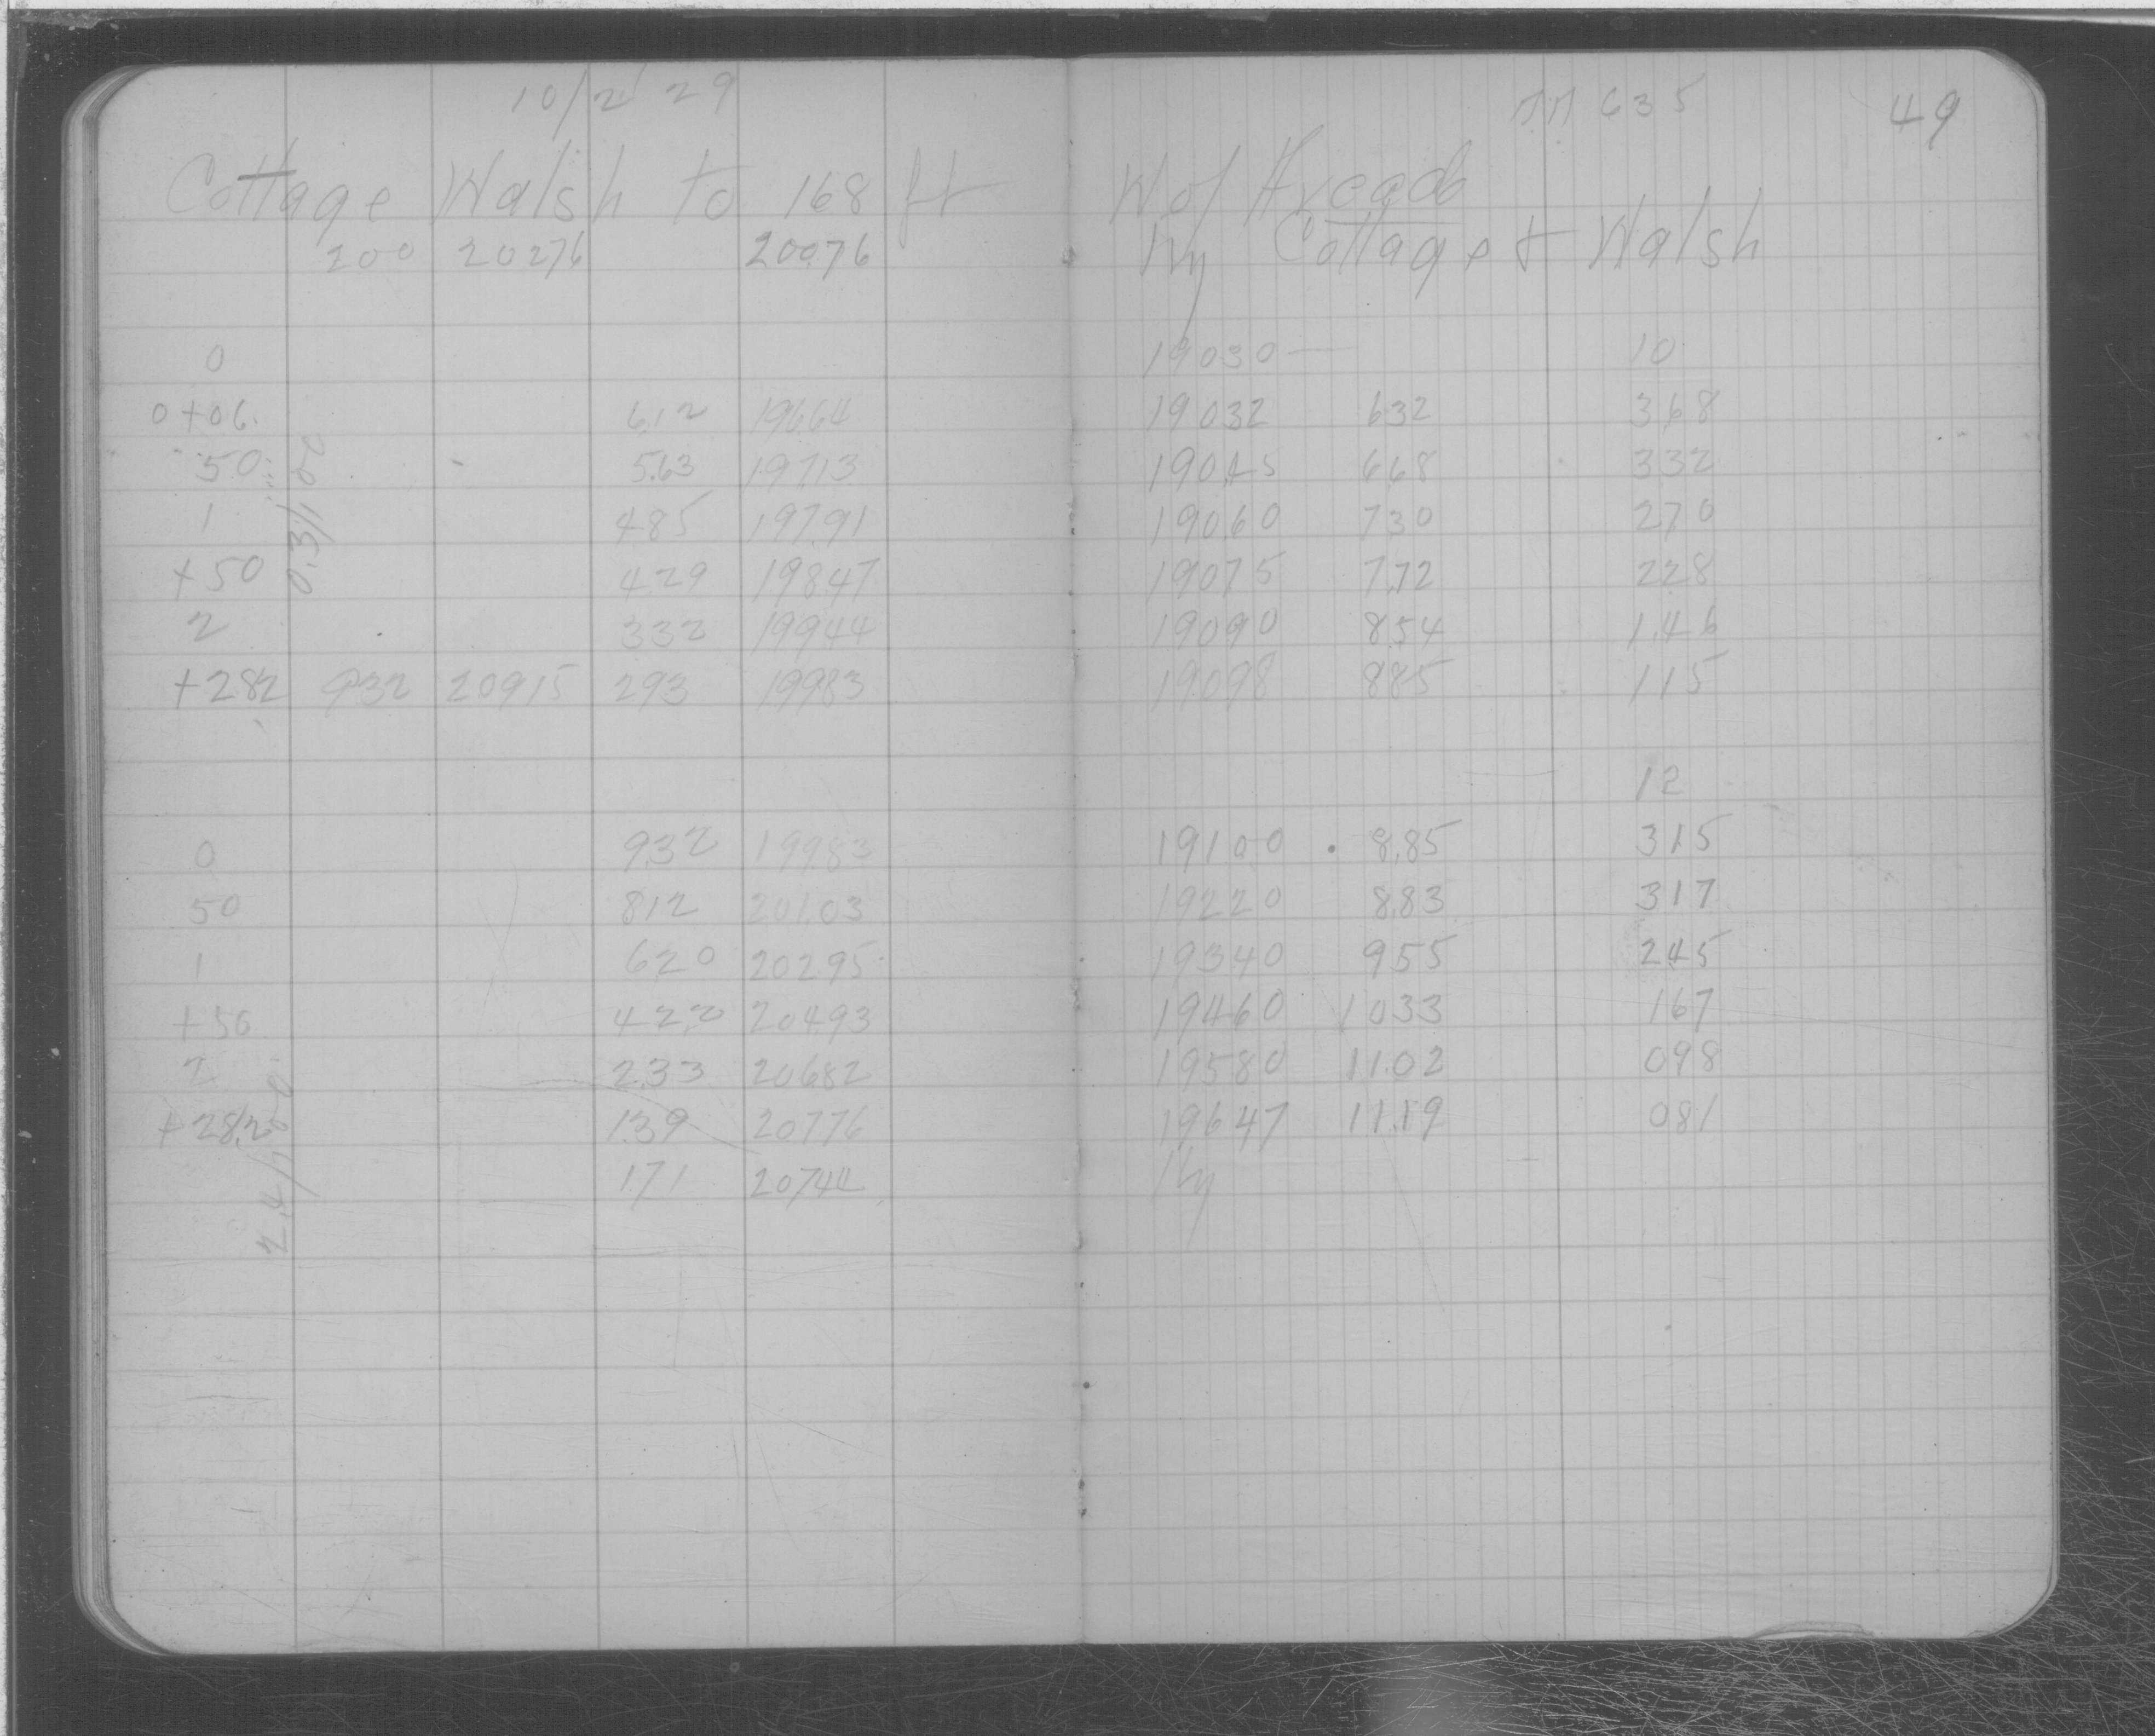 10/2 29 635 49
Cottage Walsh to 168 ft W of Arcade
200 20276 20076 Hy Cottage & Walsh
0 19030 — 10
0+06. 6.12 19664 19032 632 368
50 5.63 19713 19045 668 332
1 485 19791 19060 730 270
+50 429 19847 19075 7.72 228
2 332 19944 19090 854 1.46
+282 932 20915 293 19983 19098 885 115
0.3/100
12
0 932 19983 19100 8.85 315
50 812 20103 19220 8.83 317
1 620 20295 19340 955 245
+50 422 20493 19460 1033 167
2 233 20682 19580 11.02 098
+28.2 139 20776 19647 11.19 081
171 20744 Hy
2.4/100